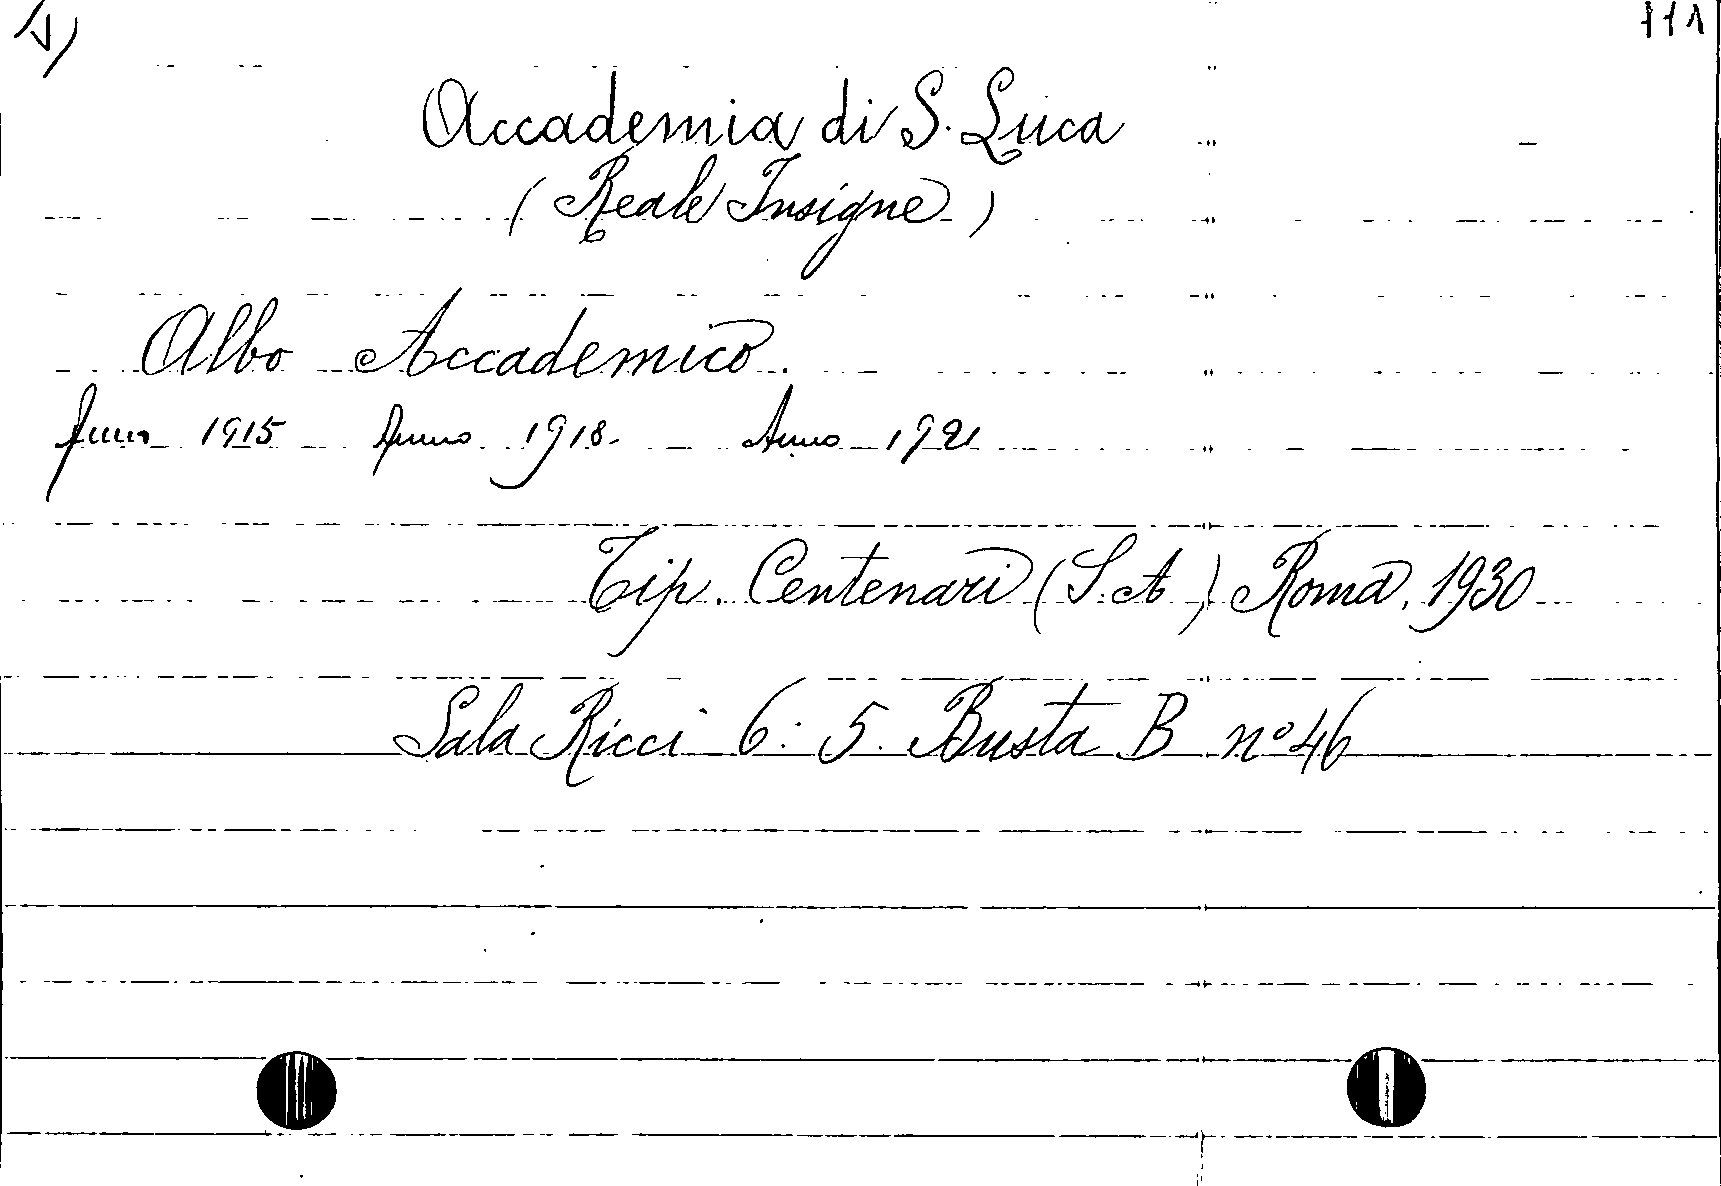 1) 111
Accademia di S. Luca
(Reale Insigne)
Albo Accademico.
Anno 1915 Anno 1918. Anno 1921
Tip. Centenari (S.A) Roma, 1930
Sala Ricci 6: 5. Busta B nº 46